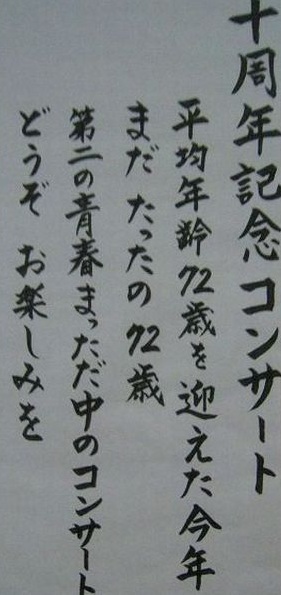 十周年記念コンサート
平均年齢72歳を迎えた今年
まだ たったの 72歳
第二の青春まっただ中のコンサート
どうぞ お楽しみを